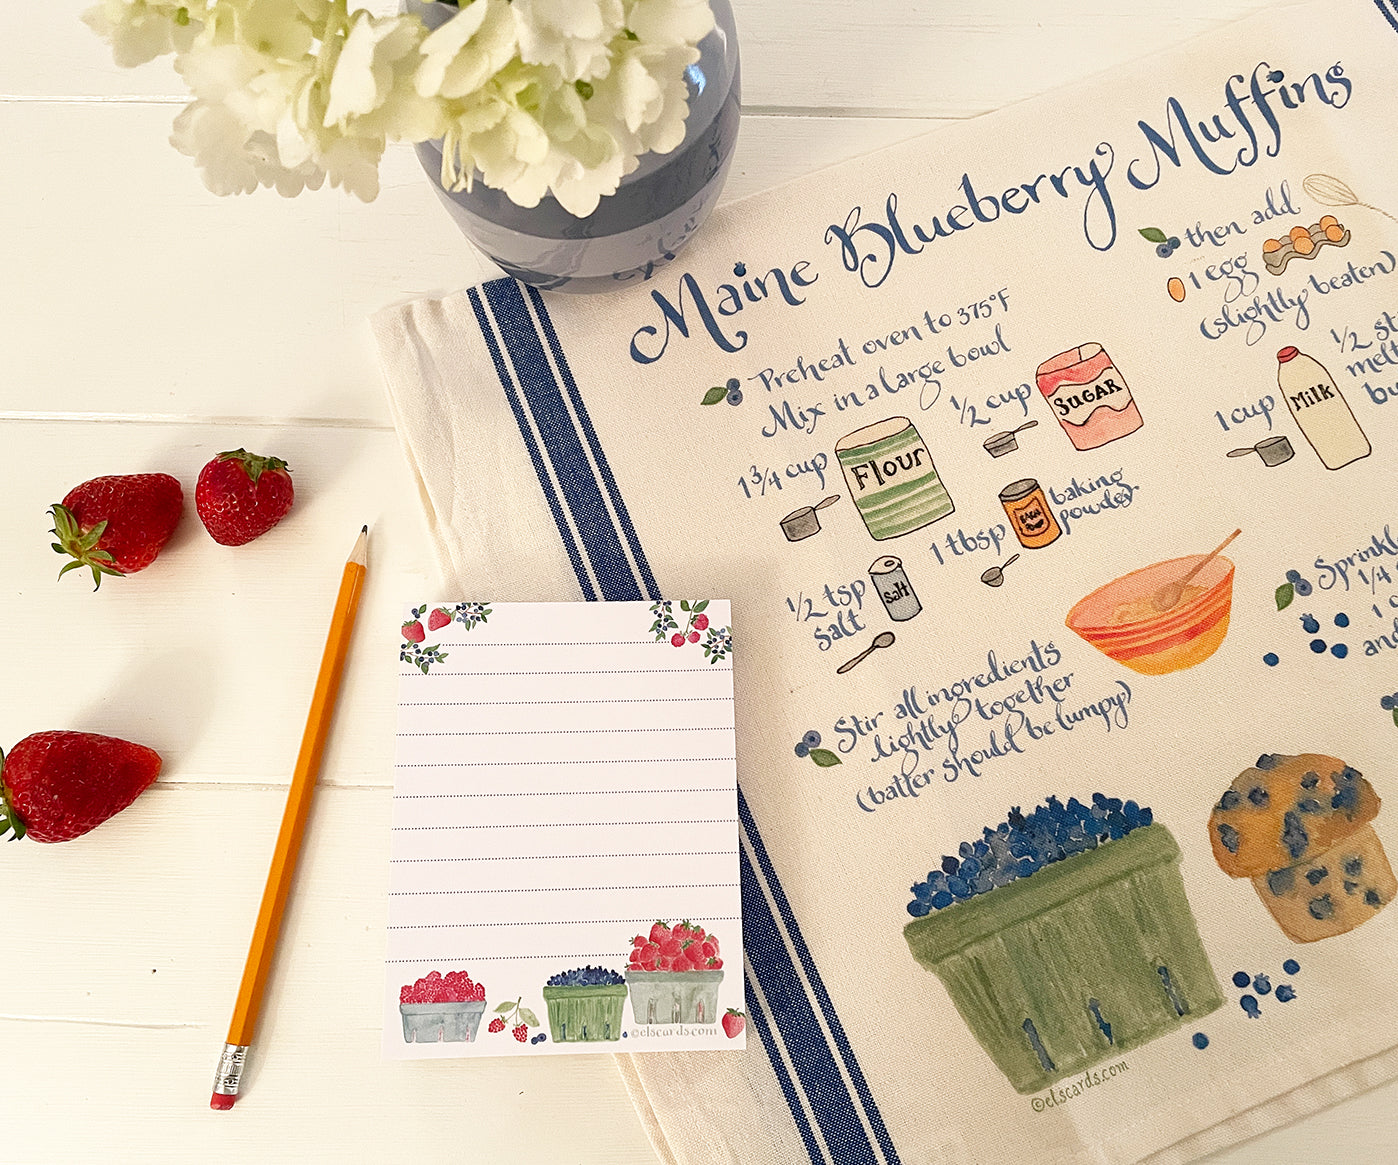 Maine Blueberry Muffins
Preheat oven to 375°F
Mix in a large bowl
1 3/4 cup
Flour
1/2 cup
SUGAR
1/2 tsp
salt
Salt
1 tbsp
baking
powder
Stir all ingredients
lightly together
(batter should be lumpy)
then add
1 egg
(slightly beaten)
1 cup
Milk
1/2
Sprinkle
1/4
©elscards.com
©elscards.com